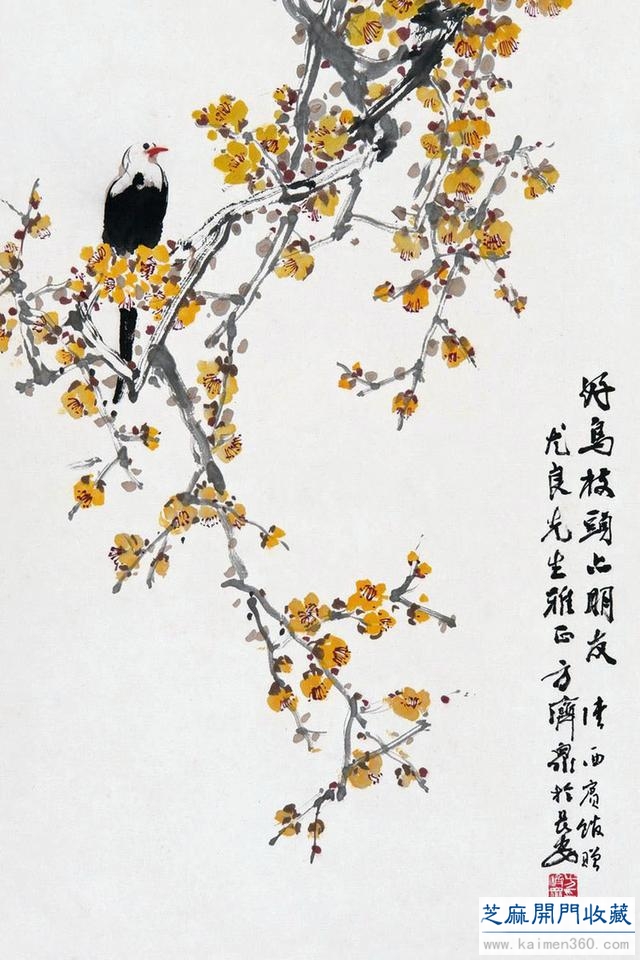 好鳥枝頭亦朋友 陕西賓館贈
尤良先生雅正 方濟眾於長安
芝麻開門收藏
www.kaimen360.com